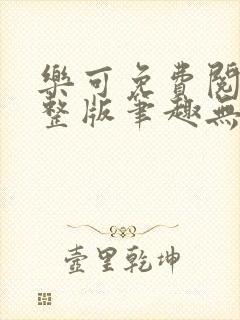 樂可免費閱
整版筆趣無
壺里乾坤